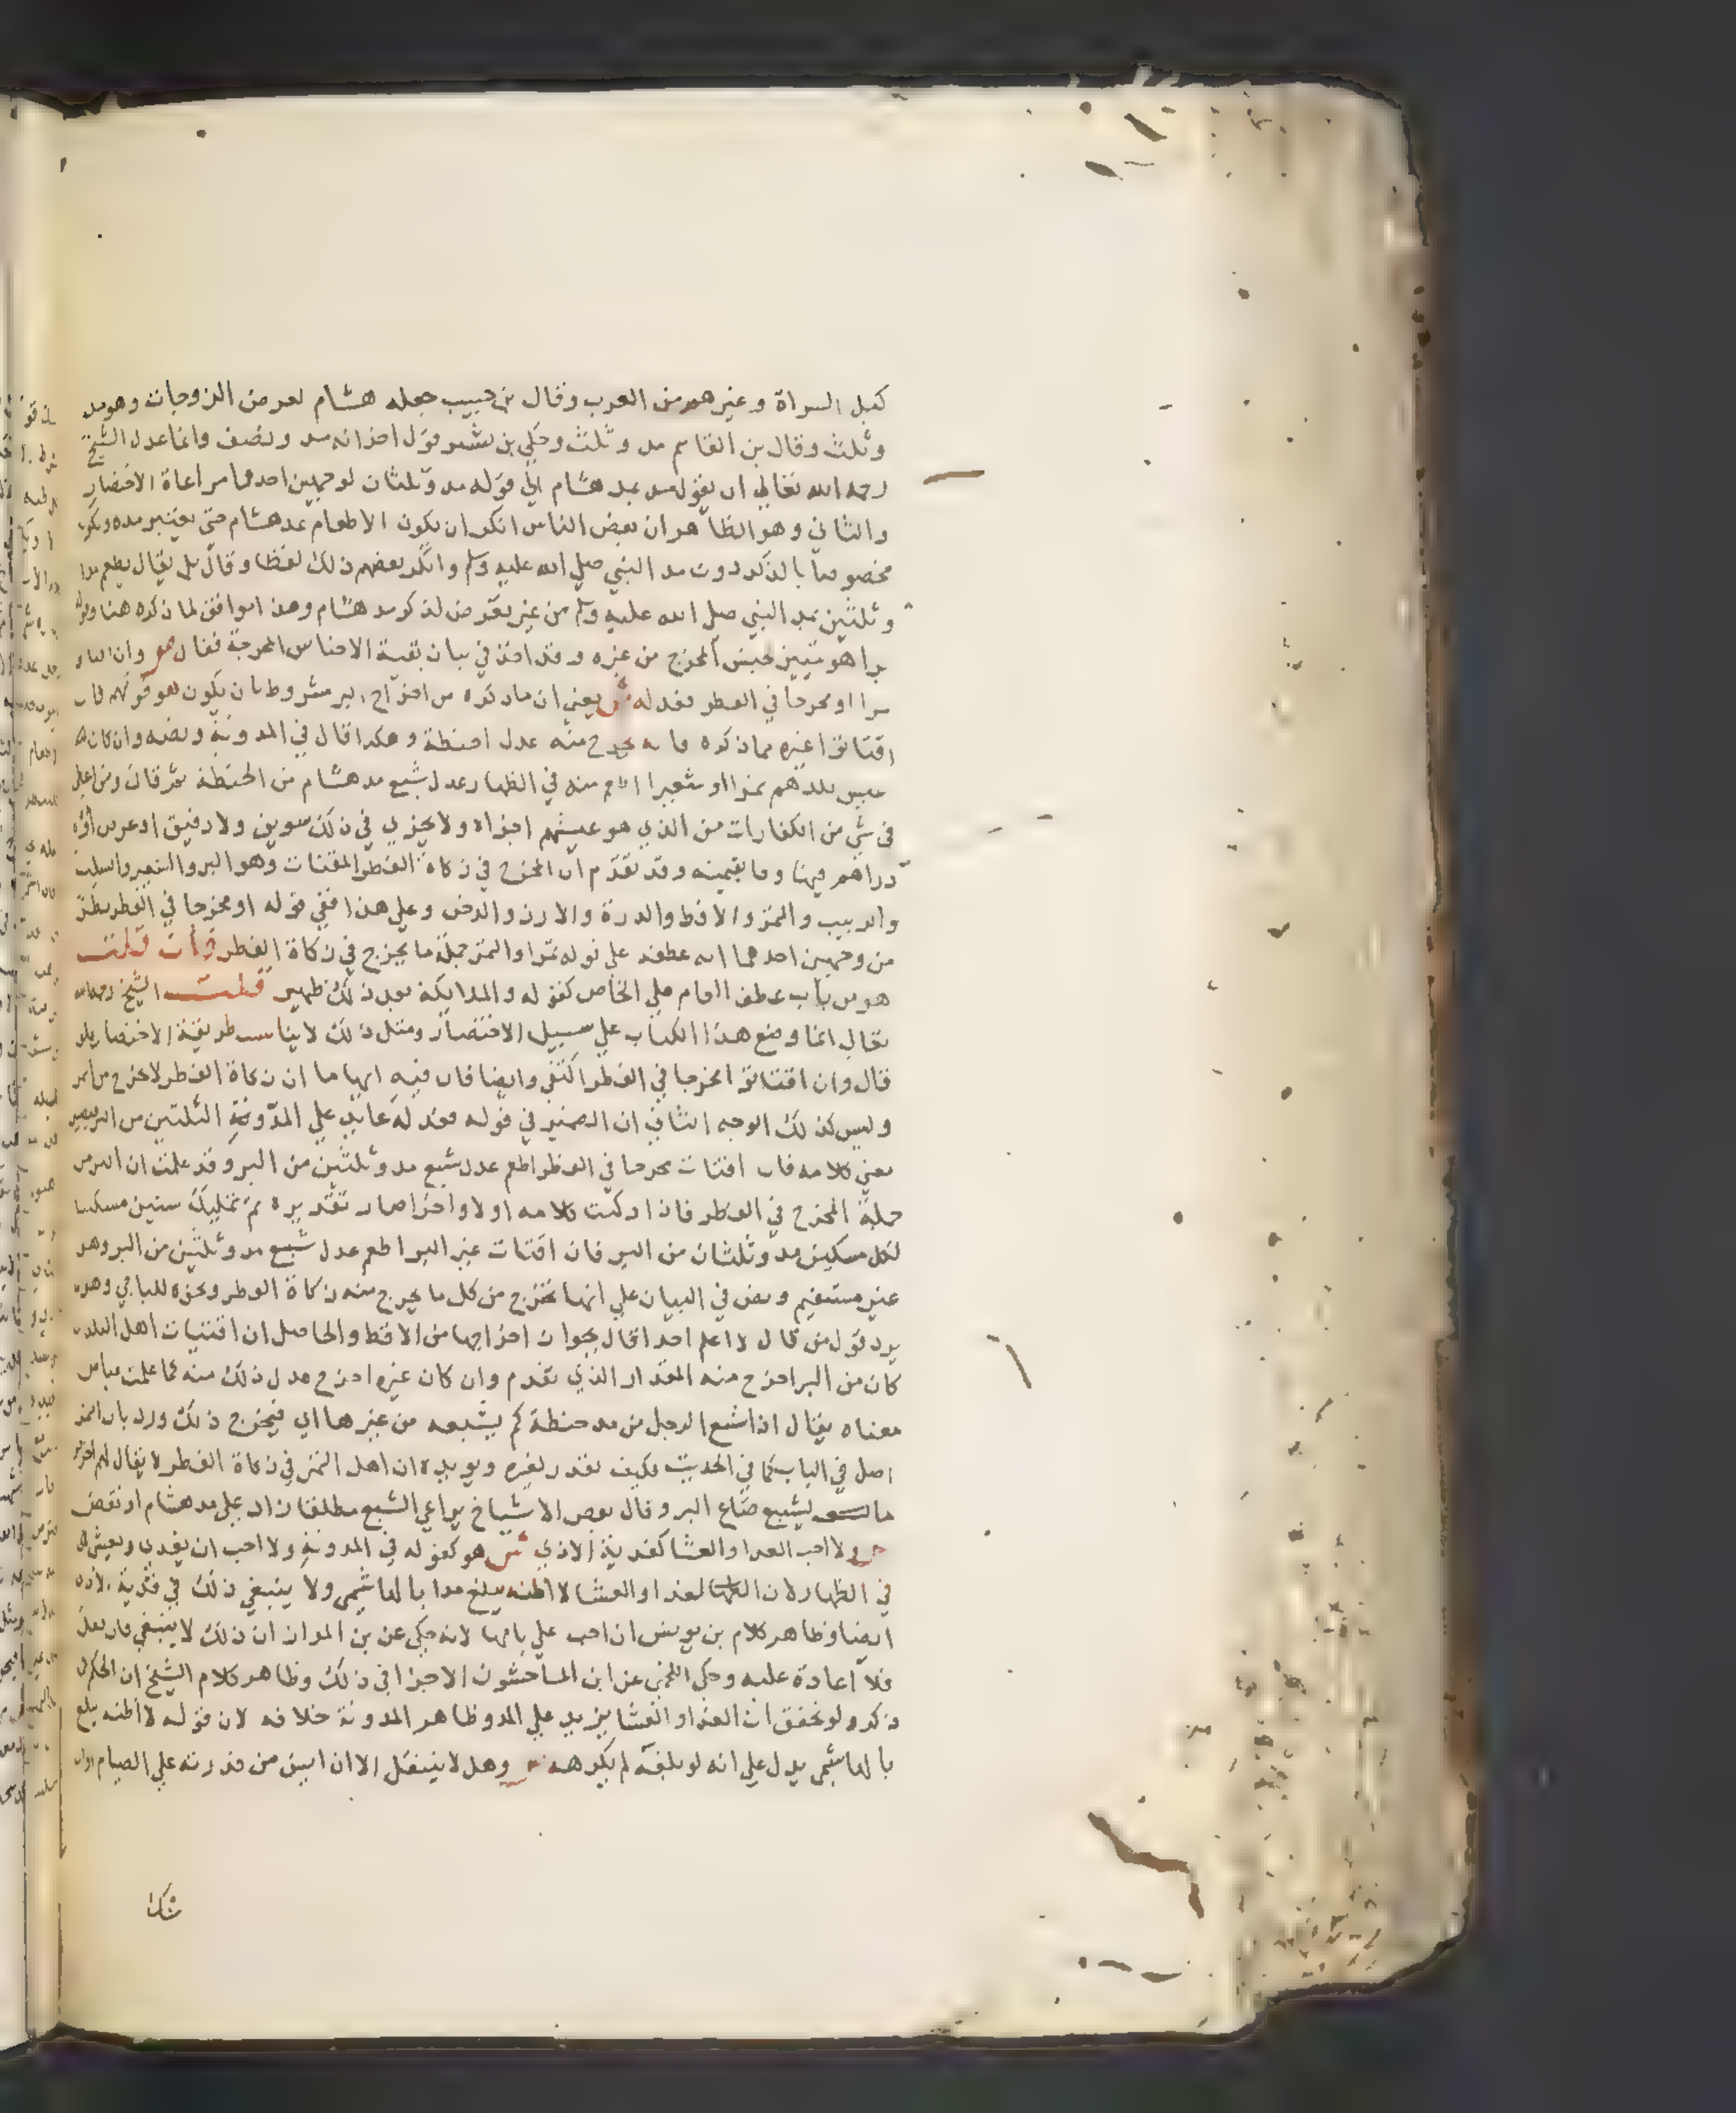 كيل السراة وغيرهم من العرب وقال بن حبيب جعله هشام لعرض الزوجات وهو مد
وثلث وقال بن القاسم مد وثلث وحكي بن بشير قول اخر انه مد ونصف وانما عدل الشيخ
رحمه الله تعالي ان يقول مد بمد هشام الي قوله مد وثلثان لوجهين احدهما مراعاة الاختصار
والثاني وهو الظاهر ان بعض الناس انكر ان يكون الاطعام بمد هشام حتي يعتبر مده ويكون
مخصوصا بالذكر دون مد النبي صلي الله عليه وسلم وانكر بعضهم ذلك لفظا وقال بل يقال يطعم مدا
وثلثين بمد النبي صلي الله عليه وسلم من غير تعرض لذكر مد هشام وهذا موافق لما ذكره هنا وقوله
برا هو تبيين جنس المخرج من غيره وقد اخذ في بيان بقية الاجناس المخرجة فقال ص وان اقتاتوا
تمرا او مخرجا في الفطر فعدله ش يعني ان ما ذكره من اخراج البر مشروط بان يكون هو قوتهم فان
اقتاتوا غيره مما ذكره فانه يخرج منه عدل الحنطة وهكذا قال في المدونة ونصه وان كان
عيش بلدهم تمرا او شعيرا اطعم منه في الظهار عدل شبع مد هشام من الحنطة ثم قال ومن اعطي
في شي من الكفارات من الذي هو عيشهم اجزاه ولا يجزي في ذلك سويق ولا دقيق او عرض او
دراهم فيها وفا بقيمته وقد تقدم ان المخرج في زكاة الفطر المقتات وهو البر والشعير والسلت
والزبيب والتمر والاقط والذرة والارز والدخن وعلي هذا ففي قوله او مخرجا في الفطر نظر
من وجهين احدهما انه عطفه علي قوله تمرا والتمر جملة ما يخرج في زكاة الفطر فان قلت
هو من باب عطف العام علي الخاص كقوله والملايكة بعد ذلك ظهير قلت الشيخ رحمه الله
تعالي انما وضع هذا الكتاب علي سبيل الاختصار ومثل ذلك لا يناسب طريقة الاختصار فلو
قال وان اقتاتوا مخرجا في الفطر اكتفي وايضا فان فيه ايهاما ان زكاة الفطر لا تخرج من البر
وليس كذلك الوجه الثاني ان الضمير في قوله فعدله عايد علي المد والثلثين من البر فيصير
معني كلامه فان اقتات مخرجا في الفطر اطعم عدل شبع مد وثلثين من البر وقد علمت ان البر من
جملة المخرج في الفطر فاذا ركبت كلامه اولا واخرا صار تقديره ثم تمليك ستين مسكينا
لكل مسكين مد وثلثان من البر فان اقتات غير البر اطعم عدل شبع مد وثلثين من البر وهو
غير مستقيم ونص في البيان علي انها تخرج من كل ما يخرج منه زكاة الفطر ونحوه للباجي وهو
يرد قول من قال لا اعلم احدا قال بجواز اخراجها من الاقط والحاصل ان اقتيات اهل البلد
كان من البر اخرج منه المقدار الذي تقدم وان كان غيره اخرج عدل ذلك منه كما علمت عياض
معناه يقال اذا شبع الرجل من مد حنطة كم يشبعه من غيرها اي فيخرج ذلك ورد بان التمر
اصل في الباب كما في الحديث فكيف يقدر بغيره ويويده ان اهل التمر في زكاة الفطر لا يقال لهم اخرجوا
ما يشبع صاع البر وقال بعض الاشياخ يراعي الشبع مطلقا زاد علي مد هشام او نقص
ص ولا احب الغدا والعشا كفدية الاذي ش هو كقوله في المدونة ولا احب ان يغدي ويعشي
في الظهار لان الغدا والعشا لا اظنه يبلغ مدا بالهاشمي ولا ينبغي ذلك في فدية الاذي
ايضا وظاهر كلام بن يونس ان احب علي بابها لانه حكي عن بن المواز ان ذلك لا ينبغي فان فعل
فلا اعادة عليه وحكي اللخمي عن ابن الماجشون الاجزا في ذلك وظاهر كلام الشيخ ان الحكم
ذكر ولو تحقق ان الغدا والعشا يزيد علي المد وظاهر المدونة خلافه لان قوله لا اظنه يبلغ
بالهاشمي يدل علي انه لو بلغه لم يكره ص وهل لا ينتقل الا ان ايس من قدرته علي الصيام او ان
شكا